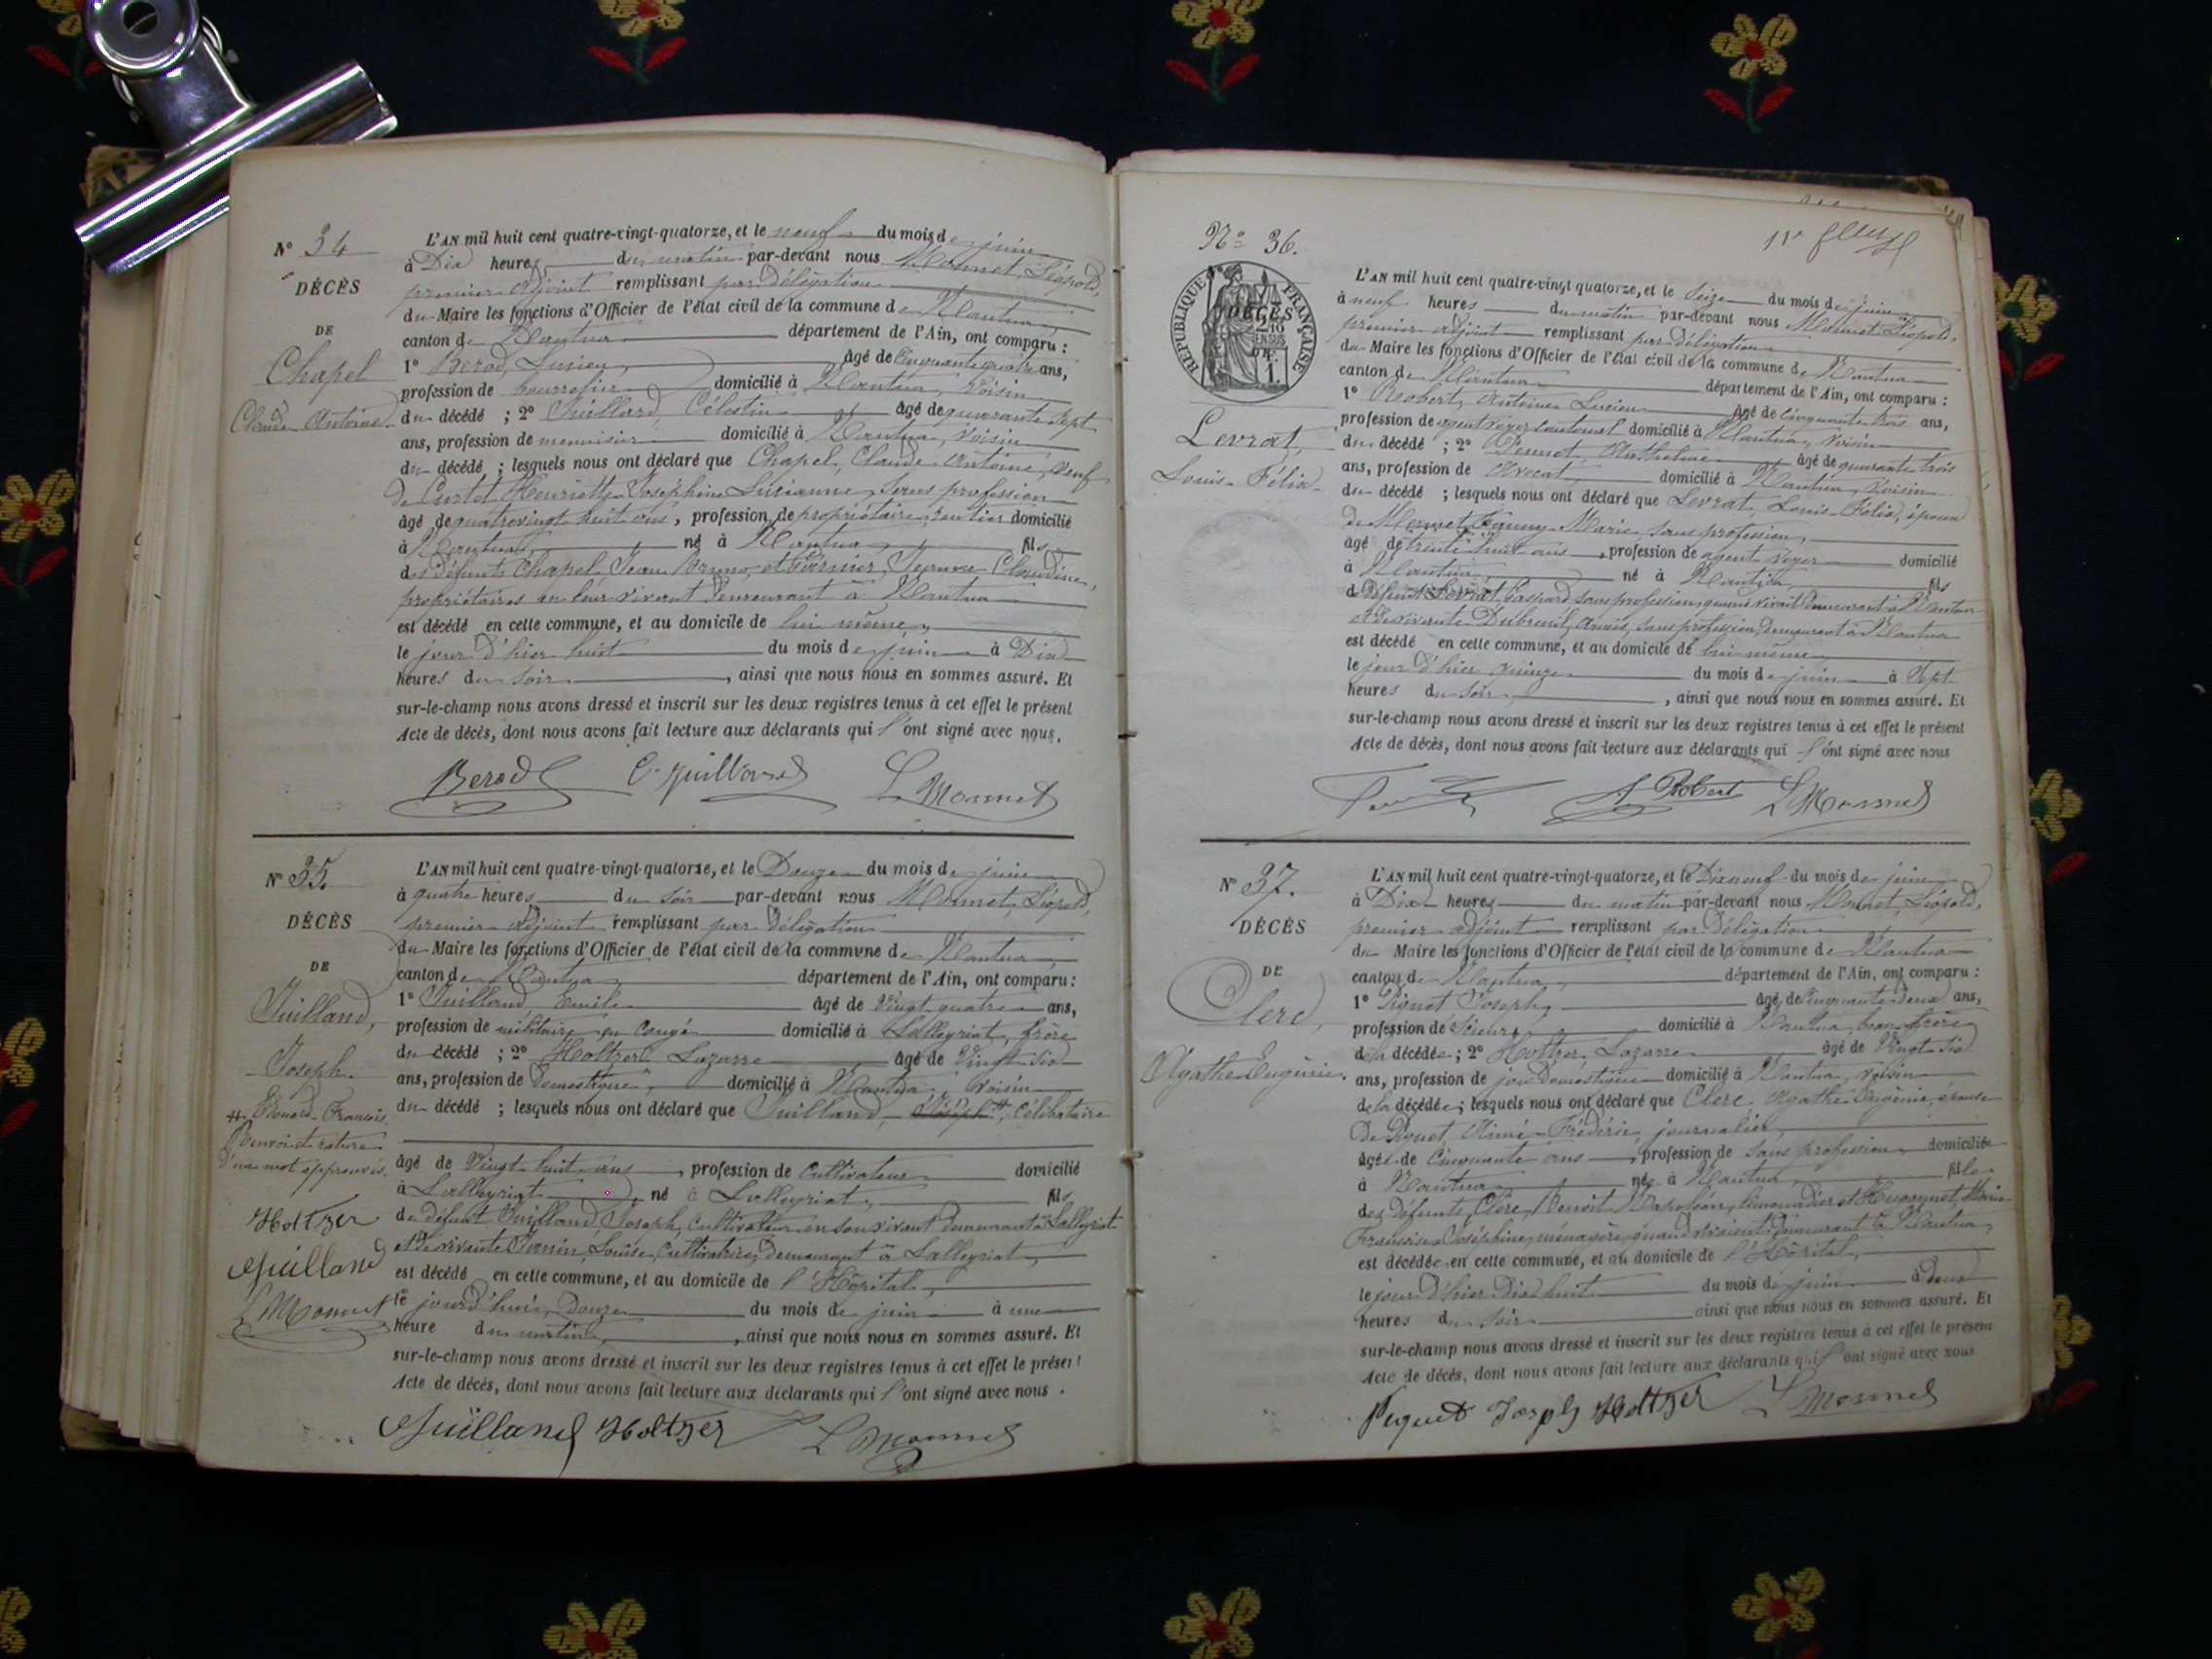 N° 34
DÉCÈS
DE
Chapel
Claude Antoine
L'AN mil huit cent quatre-vingt-quatorze, et le neuf du mois de juin
à Dix heures du matin par-devant nous Monnet, Léopold,
premier adjoint remplissant par délégation
du Maire les fonctions d'Officier de l'état civil de la commune de Nantua
canton de Nantua département de l'Ain, ont comparu :
1° Berod, Lucien, âgé de cinquante quatre ans,
profession de bourrelier domicilié à Nantua, voisin
du décédé ; 2° Juilland, Célestin âgé de quarante sept
ans, profession de menuisier domicilié à Nantua, voisin
du décédé ; lesquels nous ont déclaré que Chapel, Claude Antoine, veuf
de Curtet Henriette Joséphine Lucianne, sans profession
âgé de quatrevingt huit ans, profession de propriétaire rentier domicilié
à Nantua, né à Nantua, fils
des défunts Chapel, Jean Bruno, et Claudine,
propriétaires en leur vivant demeurant à Nantua
est décédé en cette commune, et au domicile de lui même,
le jour d'hier huit du mois de juin à Dix
heures du soir, ainsi que nous nous en sommes assuré. Et
sur-le-champ nous avons dressé et inscrit sur les deux registres tenus à cet effet le présent
Acte de décès, dont nous avons fait lecture aux déclarants qui l'ont signé avec nous.
Berod C. Juilland L Monnet
N° 35.
DÉCÈS
DE
Juilland,
Joseph.
# Edouard François
Renvoi et rature
d'un mot approuvés.
Holtzer
Juilland
L Monnet
L'AN mil huit cent quatre-vingt-quatorze, et le Douze du mois de juin
à quatre heures du soir par-devant nous Monnet, Léopold,
premier adjoint remplissant par délégation
du Maire les fonctions d'Officier de l'état civil de la commune de Nantua,
canton de Nantua département de l'Ain, ont comparu :
1° Juilland, Emile âgé de Vingt quatre ans,
profession de militaire en congé domicilié à Lalleyriat, frère
du décédé ; 2° Holtzer Lazarre âgé de Vingt six
ans, profession de Domestique, domicilié à Nantua, voisin
du décédé ; lesquels nous ont déclaré que Juilland, Joseph #, célibataire
âgé de Vingt huit ans, profession de Cultivateur domicilié
à Lalleyriat, né à Lalleyriat, fils
de défunt Juilland, Joseph, cultivateur en son vivant demeurant à Lalleyriat
et de vivante Louise, Cultivatrice, demeurant à Lalleyriat,
est décédé en cette commune, et au domicile de l'Hôpital,
le jourd'hui, Douze du mois de juin à une
heure du matin, ainsi que nous nous en sommes assuré. Et
sur-le-champ nous avons dressé et inscrit sur les deux registres tenus à cet effet le présent
Acte de décès, dont nous avons fait lecture aux déclarants qui l'ont signé avec nous.
Juilland Holtzer L Monnet
N° 36.
RÉPUBLIQUE FRANÇAISE
DÉCÈS
2/10
EN SUS
Levrat,
Louis-Félix
L'AN mil huit cent quatre-vingt quatorze, et le Seize du mois de juin
à neuf heures du matin par-devant nous Monnet, Léopold,
premier adjoint remplissant par délégation
du Maire les fonctions d'Officier de l'état civil de la commune de Nantua
canton de Nantua département de l'Ain, ont comparu :
1° Robert, Antoine Lucien âgé de cinquante trois ans,
profession de agent voyer cantonal domicilié à Nantua, voisin
du décédé ; 2° Anthelme âgé de quarante trois
ans, profession de Avocat domicilié à Nantua, voisin
du décédé ; lesquels nous ont déclaré que Levrat, Louis-Félix, époux
de Fanny Marie, sans profession,
âgé de trente huit ans, profession de agent voyer domicilié
à Nantua né à Nantua fils
de Défunt Levrat, Gaspard, sans profession, quand vivait demeurant à Nantua
et de vivante Dubreuil, Anaïs, sans profession, demeurant à Nantua
est décédé en cette commune, et au domicile de lui même,
le jour d'hier quinze du mois de juin à Sept
heures du soir, ainsi que nous nous en sommes assuré. Et
sur-le-champ nous avons dressé et inscrit sur les deux registres tenus à cet effet le présent
Acte de décès, dont nous avons fait lecture aux déclarants qui l'ont signé avec nous
A Robert L Monnet
N° 37.
DÉCÈS
DE
Clerc,
Agathe Eugénie.
L'AN mil huit cent quatre-vingt-quatorze, et le Dix neuf du mois de juin
à Dix heures du matin par-devant nous Monnet, Léopold,
premier adjoint remplissant par délégation
du Maire les fonctions d'Officier de l'état civil de la commune de Nantua
canton de Nantua, département de l'Ain, ont comparu :
1° Piquet Joseph, âgé de Cinquante Deux ans,
profession de Scieur, domicilié à Nantua, beau frère
de la décédée ; 2° Holtzer Lazarre âgé de Vingt six
ans, profession de Domestique domicilié à Nantua, voisin
de la décédée ; lesquels nous ont déclaré que Clerc Agathe Eugénie, épouse
de Piquet, Aimé Frédéric, journalier,
âgée de Cinquante ans, profession de sans profession, domiciliée
à Nantua née à Nantua, fille
des défunts Clerc, Benoit Napoléon, limonadier et Marie
Françoise Joséphine, ménagère, quand vivaient demeurant à Nantua,
est décédée en cette commune, et au domicile de l'Hôpital,
le jour d'hier Dix huit du mois de juin à deux
heures du soir ainsi que nous nous en sommes assuré. Et
sur-le-champ nous avons dressé et inscrit sur les deux registres tenus à cet effet le présent
Acte de décès, dont nous avons fait lecture aux déclarants qui l'ont signé avec nous
Piquet Joseph Holtzer L Monnet